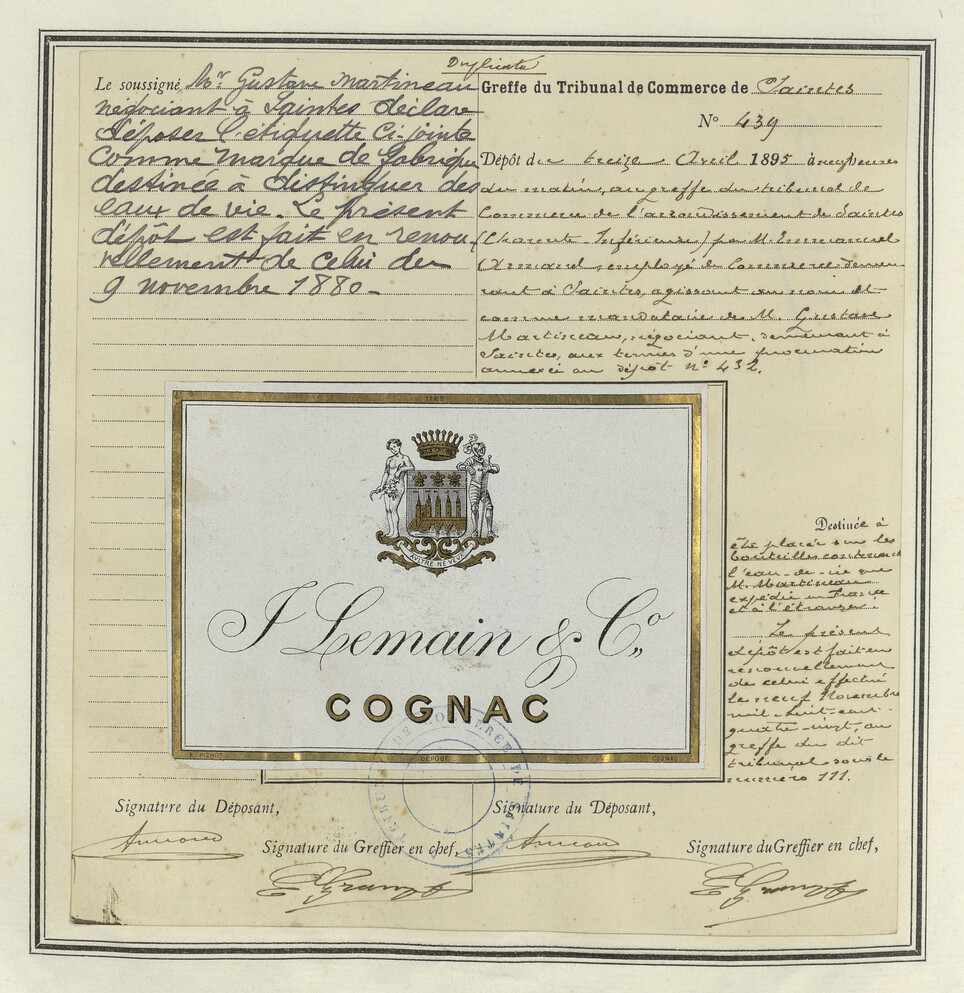 Duplicata
Le soussigné Mr. Gustave Martineau
négociant à Saintes déclare
déposer l'étiquette ci-jointe
comme marque de fabrique
destinée à distinguer des
eaux de vie. Le présent
dépôt est fait en renou
vellement de celui du
9 novembre 1880-
Greffe du Tribunal de Commerce de Saintes
N° 439
Dépôt du treize Avril 1895 à neuf heures
du matin, au greffe du tribunal de
Commerce de l'arrondissement de Saintes
(Charente Inférieure) par M. Emmanuel
Armand, employé de Commerce demeu
rant à Saintes, agissant au nom et
comme mandataire de M. Gustave
Martineau, négociant, demeurant à
Saintes, aux termes d'une procuration
annexée au dépôt n° 432.
AVLTRE NE VEVX
J Lemain & Co
COGNAC
DÉPOSÉ
COGNAC
Destinée à
être placée sur les
bouteilles contenant
l'eau-de-vie que
M. Martineau
expédie en France
et à l'étranger.
Le présent
dépôt est fait en
renouvellement
de celui effectué
le neuf Novembre
mil-huit-cent-
quatre-vingt, au
greffe du dit
tribunal sous le
numéro 111.
TRIBUNAL DE COMMERCE DE SAINTES
Signature du Déposant,
Signature du Déposant,
Armand
Armand
Signature du Greffier en chef,
Signature du Greffier en chef,